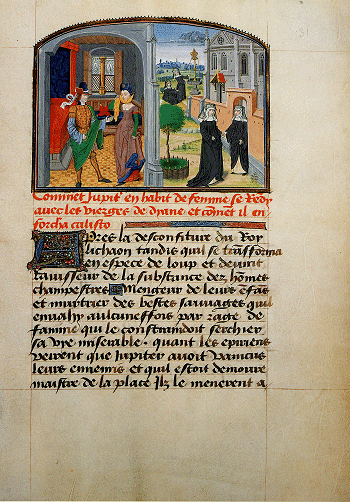 Comment Jupiter en habit de femme se rendy
avec les vierges de dyane et coment il en
forcha calisto
Apres la desconfiture du Roy
lichaon tandis quil se transforma
en espece de loup et devint
ravisseur de la substance dez homes
champestres Mengeur de leurs efas
et murtrier des bestes sauvages quil
envahy aulcuneffois par rage de
famine qui le constraindoit serchier
sa vye miserable. quant les epiriens
veirent que Jupiter avoit vaincus
leurs ennemis et quil estoit demoure
maistre de la place Ilz le menerent a